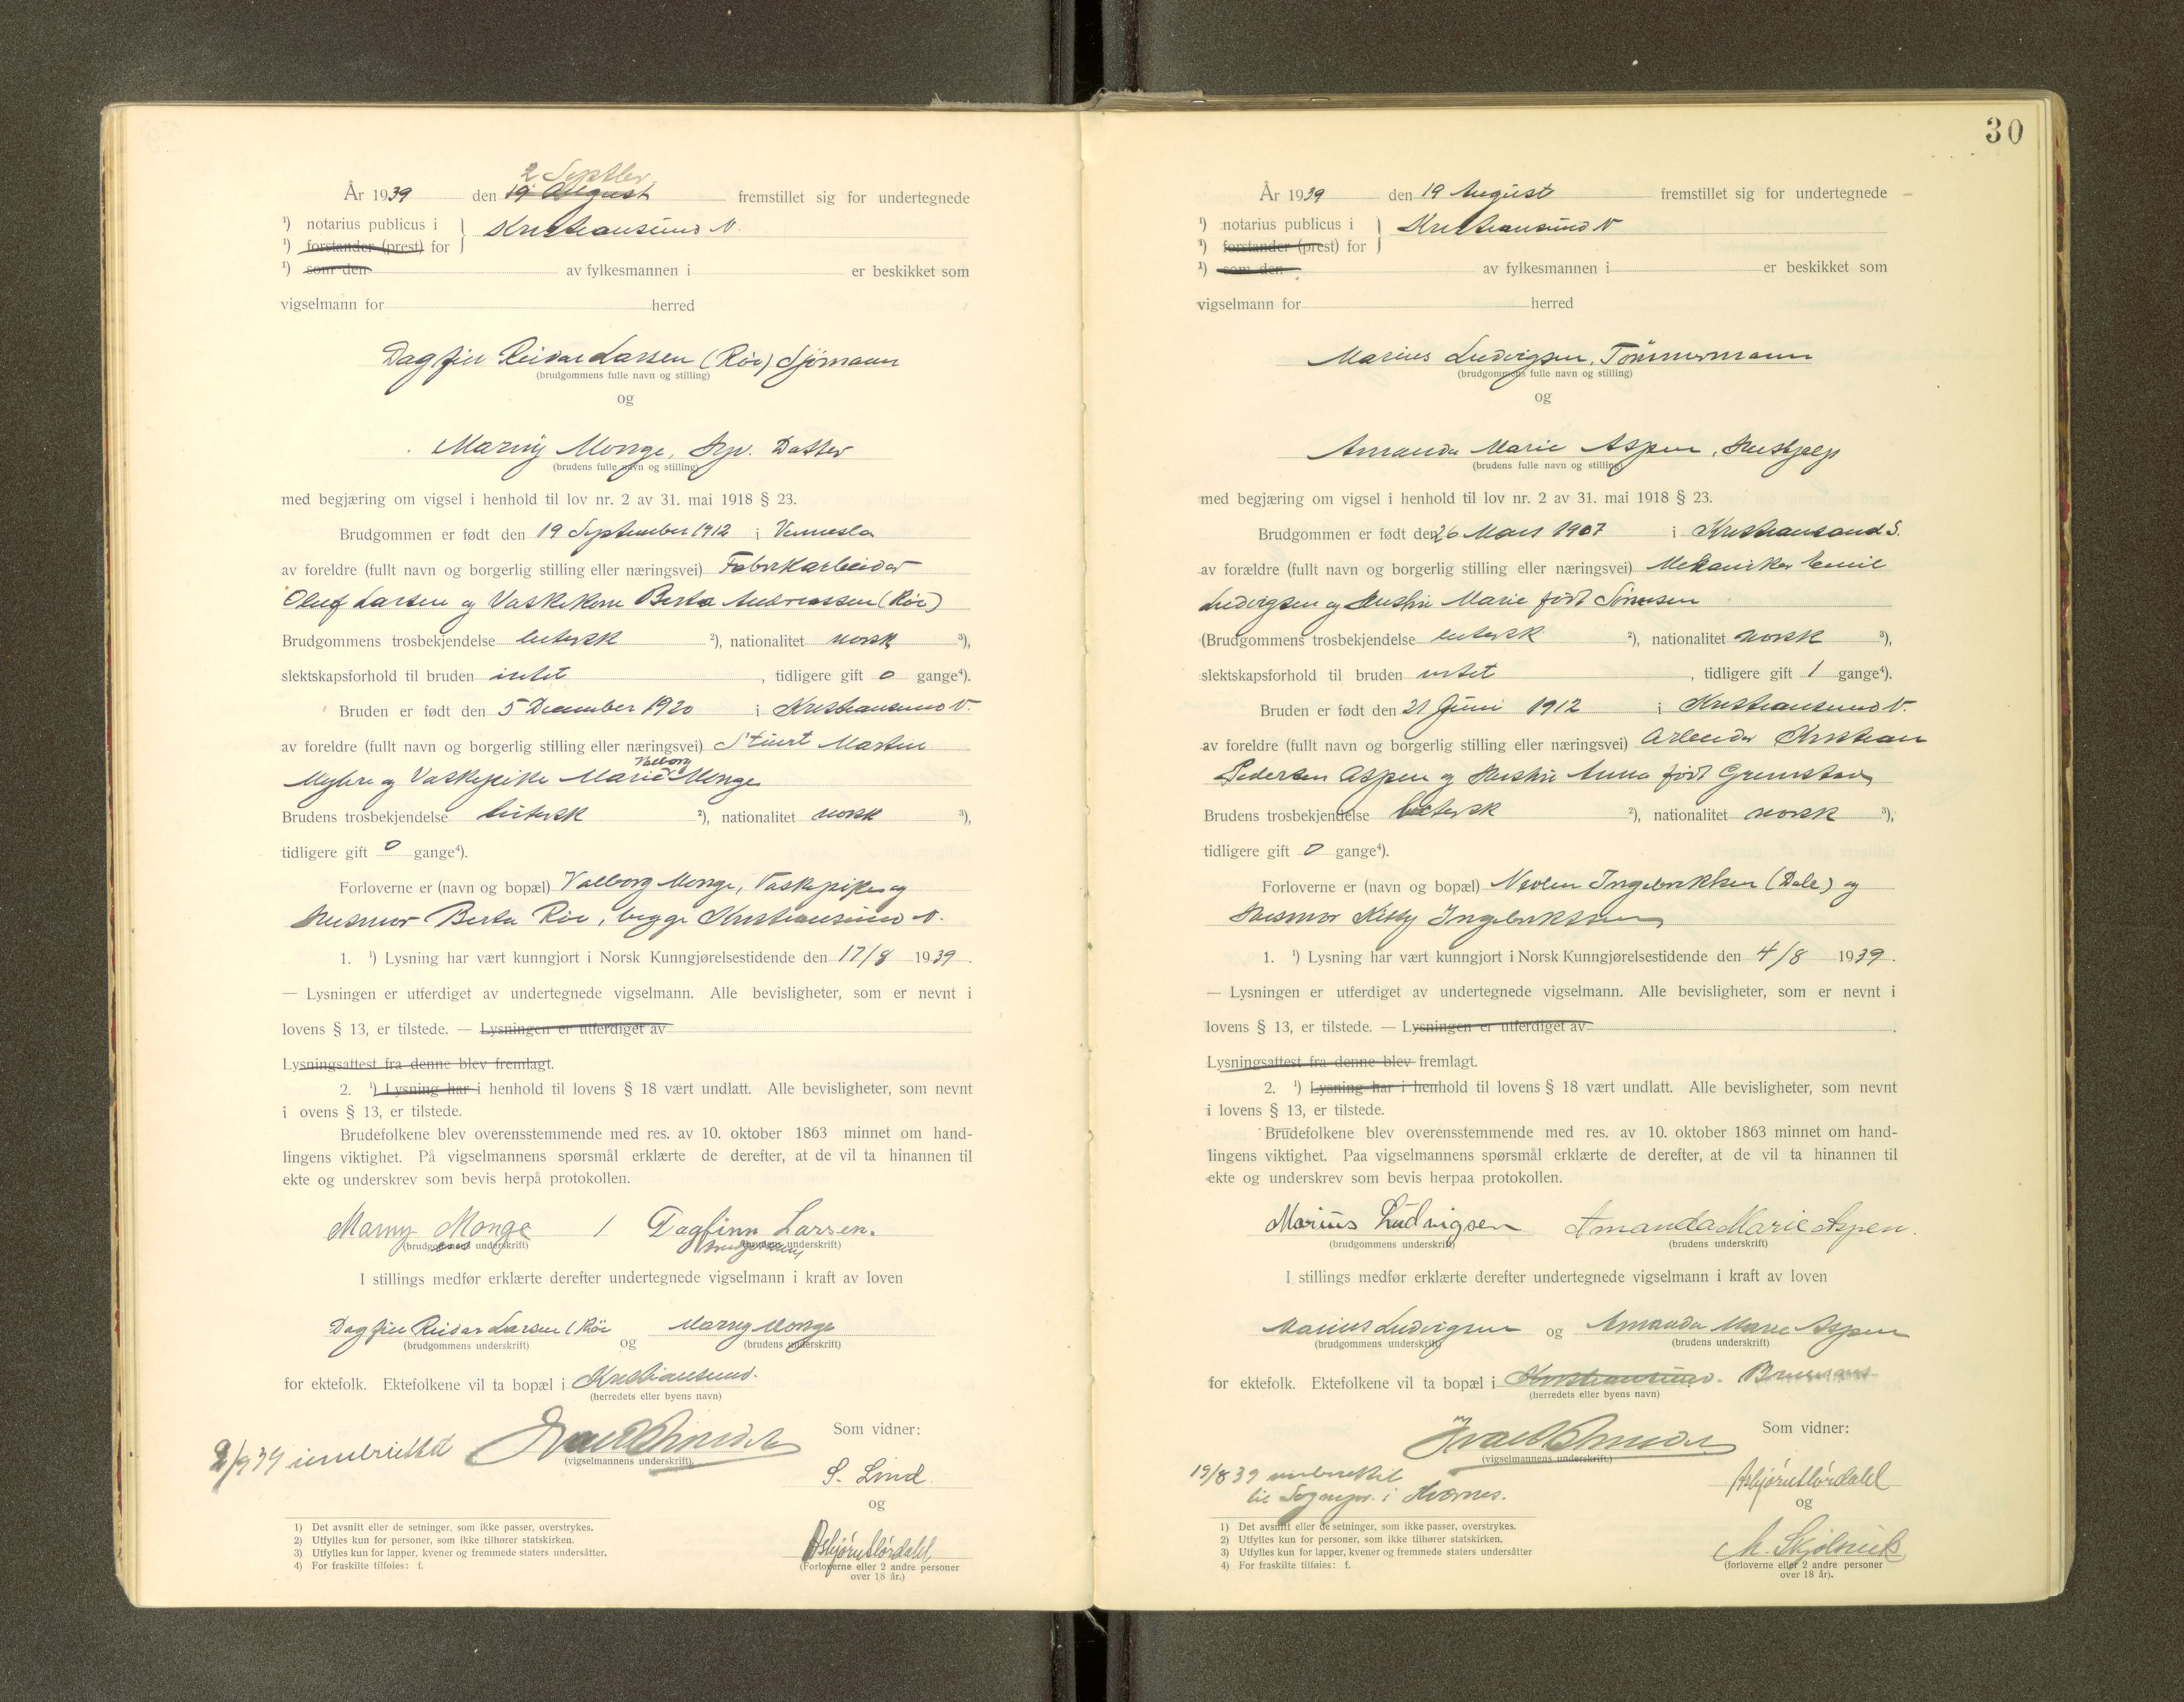 2 Septber
År 1939 den 19 August fremstillet sig for undertegnede
¹) notarius publicus i } Kristiansund N.
¹) forstander (prest) for
¹) som den av fylkesmannen i er beskikket som
vigselmann for herred
Dagfin Reidar Larsen (Röe) Sjömann
(brudgommens fulle navn og stilling)
og
Marny Monge, Datter
(brudens fulle navn og stilling)
med begjæring om vigsel i henhold til lov nr. 2 av 31. mai 1918 § 23.
Brudgommen er født den 19 September 1912 i Vennesla
av foreldre (fullt navn og borgerlig stilling eller næringsvei) Fabrikarbeider
Oluf Larsen og Vaskekone Berta Andreassen (Röe)
Brudgommens trosbekjendelse lutersk ²), nationalitet norsk ³),
slektskapsforhold til bruden intet, tidligere gift 0 gange⁴).
Bruden er født den 5 December 1920 i Kristiansund N.
av foreldre (fullt navn og borgerlig stilling eller næringsvei) Stuert Martin
Valborg
Myhre og Vaskepike Marie Monge
Brudens trosbekjendelse lutersk ²), nationalitet norsk ³),
tidligere gift 0 gange⁴).
Forloverne er (navn og bopæl) Valborg Monge, Vaskepike og
Husmor Berta Röe, begge Kristiansund N.
1. ¹) Lysning har vært kunngjort i Norsk Kunngjørelsestidende den 17/8 1939.
— Lysningen er utferdiget av undertegnede vigselmann. Alle bevisligheter, som er nevnt i
lovens § 13, er tilstede. — Lysningen er utferdiget av
Lysningsattest fra denne blev fremlagt.
2. ¹) Lysning har i henhold til lovens § 18 vært undlatt. Alle bevisligheter, som nevnt
i ovens § 13, er tilstede.
Brudefolkene blev overensstemmende med res. av 10. oktober 1863 minnet om hand-
lingens viktighet. På vigselmannens spørsmål erklærte de derefter, at de vil ta hinannen til
ekte og underskrev som bevis herpå protokollen.
Marny Monge / Dagfinn Larsen.
(brudgommens underskrift) (brudens underskrift)
brudens brudgommens
I stillings medfør erklærte derefter undertegnede vigselmann i kraft av loven
Dagfin Reidar Larsen (Röe og Marny Monge
(brudgommens underskrift) (brudens underskrift)
for ektefolk. Ektefolkene vil ta bopæl i Kristiansund.
(herredets eller byens navn)
Som vidner:
2/9 39 innberettet
(vigselmannens underskrift).
S. Lind.
og
Asbjørn Nordahl
(Forloverne eller 2 andre personer
over 18 år.)
1) Det avsnitt eller de setninger, som ikke passer, overstrykes.
2) Utfylles kun for personer, som ikke tilhører statskirken.
3) Utfylles kun for lapper, kvener og fremmede staters undersåtter.
4) For fraskilte tilføies: f.
30
År 1939 den 19 August fremstillet sig for undertegnede
¹) notarius publicus i } Kristiansund N
¹) forstander (prest) for
¹) som den av fylkesmannen i er beskikket som
vigselmann for herred
Marius Ludvigsen, Tömmermann
(brudgommens fulle navn og stilling)
og
Amanda Marie Aspen, Hushjelp
(brudens fulle navn og stilling)
med begjæring om vigsel i henhold til lov nr. 2 av 31. mai 1918 § 23.
Brudgommen er født den 26 Mars 1907 i Kristiansand S.
av forældre (fullt navn og borgerlig stilling eller næringsvei) Mekaniker Emil
Ludvigsen og Hustru Marie født Sörensen
(Brudgommens trosbekjendelse lutersk ²), nationalitet norsk ³),
slektskapsforhold til bruden intet, tidligere gift 1 gange⁴).
Bruden er født den 21 Juni 1912 i Kristiansund N.
av foreldre (fullt navn og borgerlig stilling eller næringsvei) Arbeider Kristian
Pedersen Aspen og Hustru Anna født Grimstad
Brudens trosbekjendelse lutersk ²), nationalitet norsk ³),
tidligere gift 0 gange⁴).
Forloverne er (navn og bopæl) Ingebriktsen (Dale) og
Husmor Kitty Ingebriktsen
1. ¹) Lysning har vært kunngjort i Norsk Kunngjørelsestidende den 4/8 1939.
— Lysningen er utferdiget av undertegnede vigselmann. Alle bevisligheter, som er nevnt i
lovens § 13, er tilstede. — Lysningen er utferdiget av
Lysningsattest fra denne blev fremlagt.
2. ¹) Lysning har i henhold til lovens § 18 vært undlatt. Alle bevisligheter, som nevnt
i lovens § 13, er tilstede.
Brudefolkene blev overensstemmende med res. av 10. oktober 1863 minnet om hand-
lingens viktighet. Paa vigselmannens spørsmål erklærte de derefter, at de vil ta hinannen til
ekte og underskrev som bevis herpaa protokollen.
Marius Ludvigsen Amanda Marie Aspen.
(brudgommens underskrift) (brudens underskrift)
I stillings medfør erklærte derefter undertegnede vigselmann i kraft av loven
Marius Ludvigsen og Amanda Marie Aspen
(brudgommens underskrift) (brudens underskrift)
for ektefolk. Ektefolkene vil ta bopæl i Kristiansund.
(herredets eller byens navn)
Som vidner:
(vigselmannens underskrift.)
19/8 39 innberettet
til Sognepr. i Kvernes.
Asbjørn Nordahl
og
M. Skjølsvik
(forloverne eller 2 andre personer
over 18 år).
1) Det avsnitt eller de setninger, som ikke passer, overstrykes.
2) Utfylles kun for personer, som ikke tilhører statskirken.
3) Utfylles kun for lapper, kvener og fremmede staters undersåtter
4) For fraskilte tilføies: f.